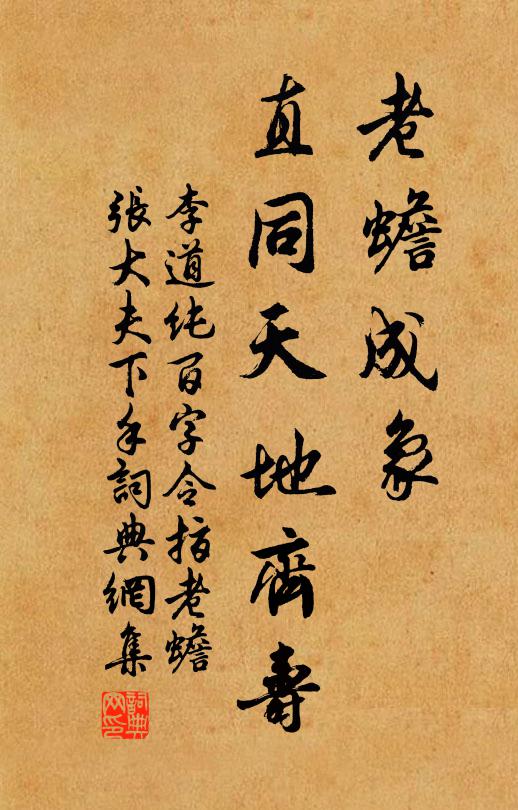 老蟾成象
直同天地齊壽
李道純百字令指老蟾
張大夫下手詞典網集
詞典网印